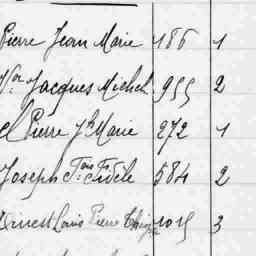 Pierre Jean Marie 186 1
Vor Jacques Michel 955 2
el Pierre Jh Marie 272 1
Joseph Fois Fidèle 584 2
Ernest Louis Pierre 1015 3